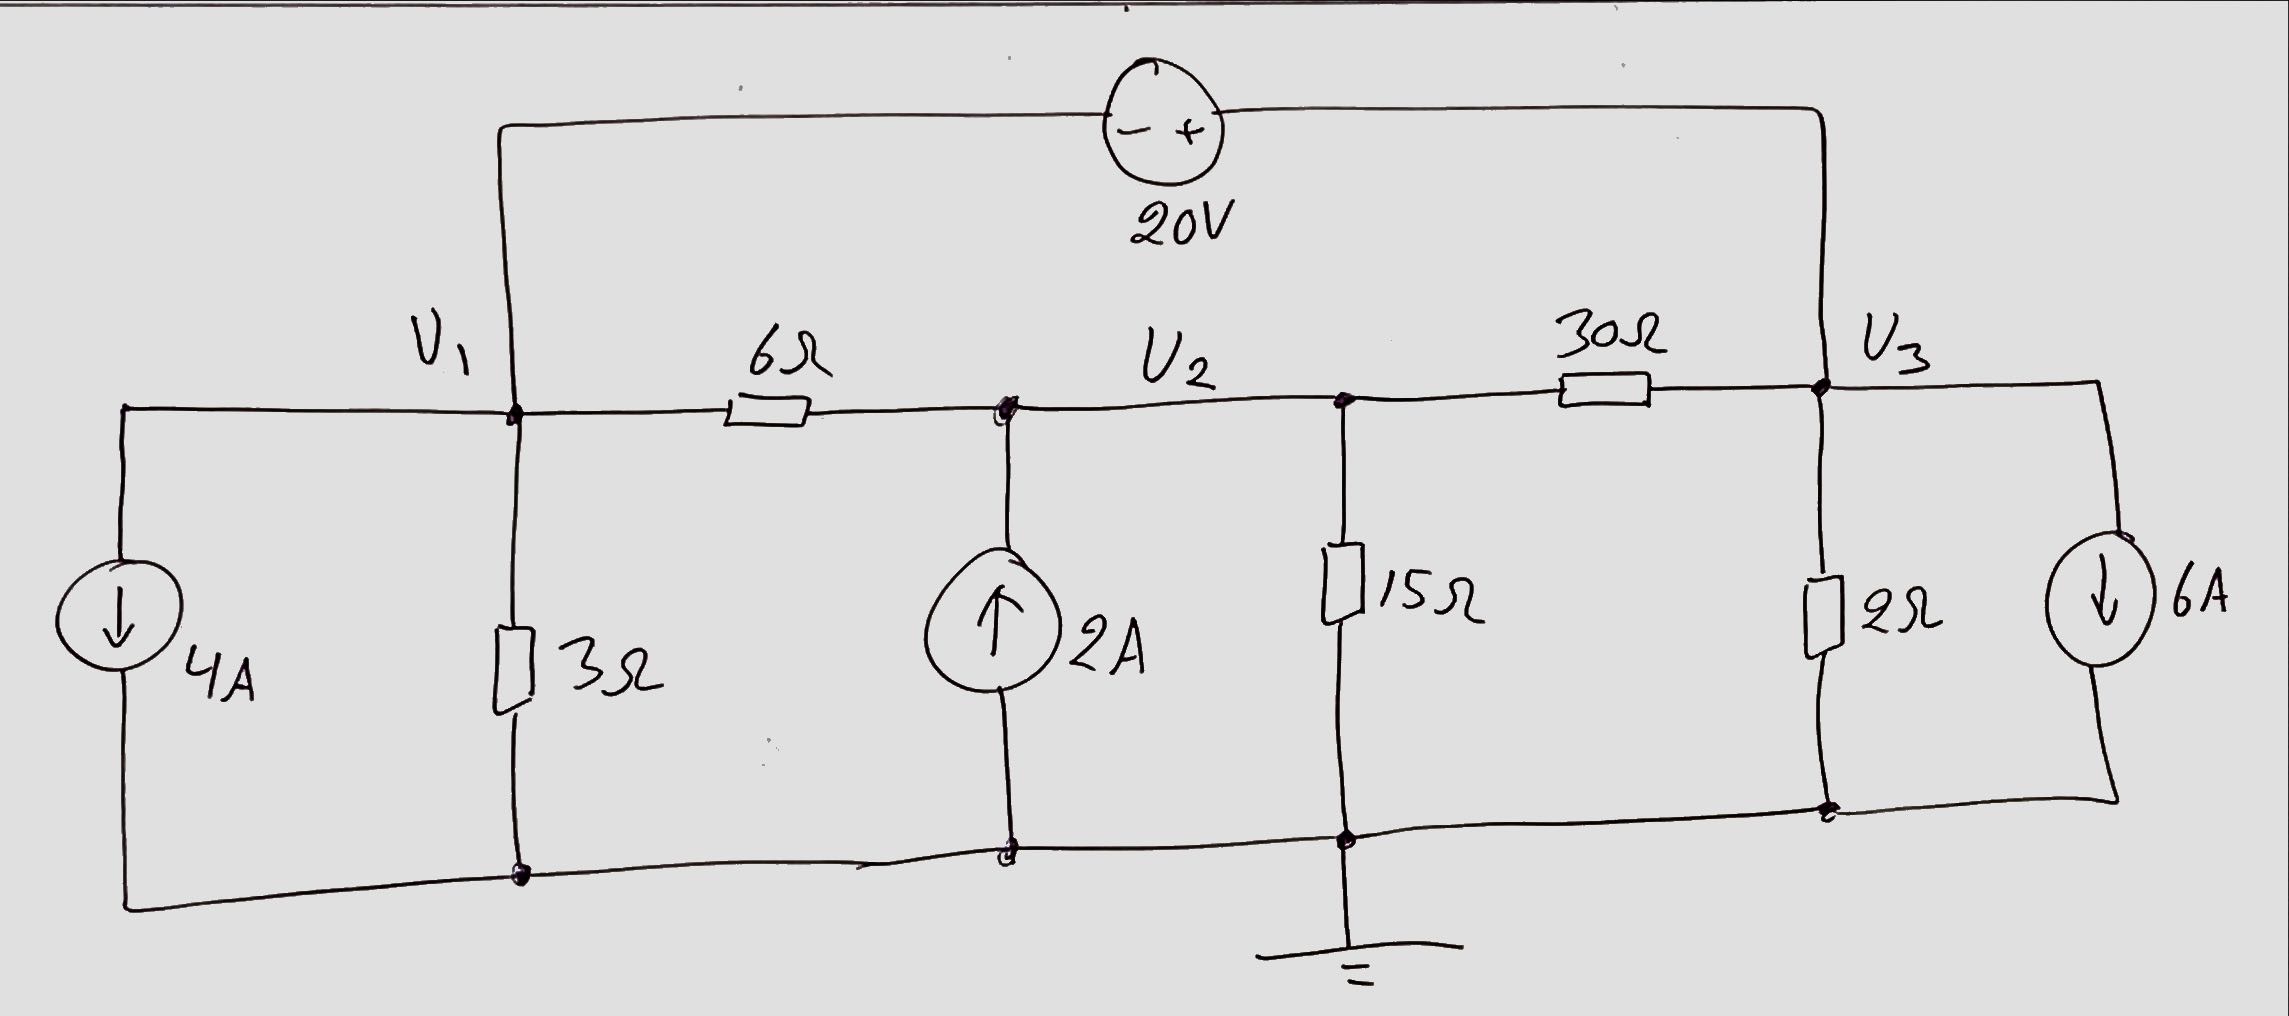 - +
20V
V₁
6Ω
V₂
30Ω
V₃
4A
3Ω
2A
15Ω
2Ω
6A